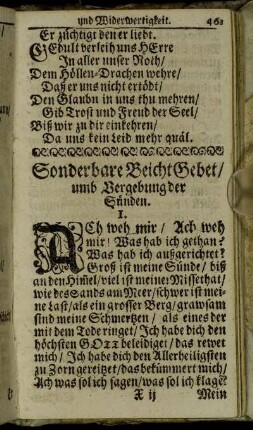 und Widerwertigkeit. 461
Er züchtigt den er liebt.
GEdult verleih uns HErre
In aller unser Noth/
Dem Höllen-Drachen wehre/
Daß er uns nicht ertödt/
Den Glaubn in uns thu mehren/
Gib Trost und Freud der Seel/
Biß wir zu dir einkehren/
Da uns kein Leid mehr quäl.
Sonderbare Beicht Gebet/
umb Vergebung der
Sünden.
I.
ACh weh mir/ Ach weh
mir! Was hab ich gethan?
Was hab ich außgerichtet?
Groß ist meine Sünde/ biß
an den Him̃el/ viel ist meine Missethat/
wie des Sands am Meer/ schwer ist mei-
ne Last/ als ein grosser Berg/ grawsam
sind meine Schmertzen/ als eines der
mit dem Tode ringet/ Ich habe dich den
höchsten GOTT beleidiget/ das rewet
mich/ Ich habe dich den Allerheiligsten
zu Zorn gereitzet/ das bekümmert mich/
Ach was sol ich sagen/ was sol ich klagẽ?
X ij Mein